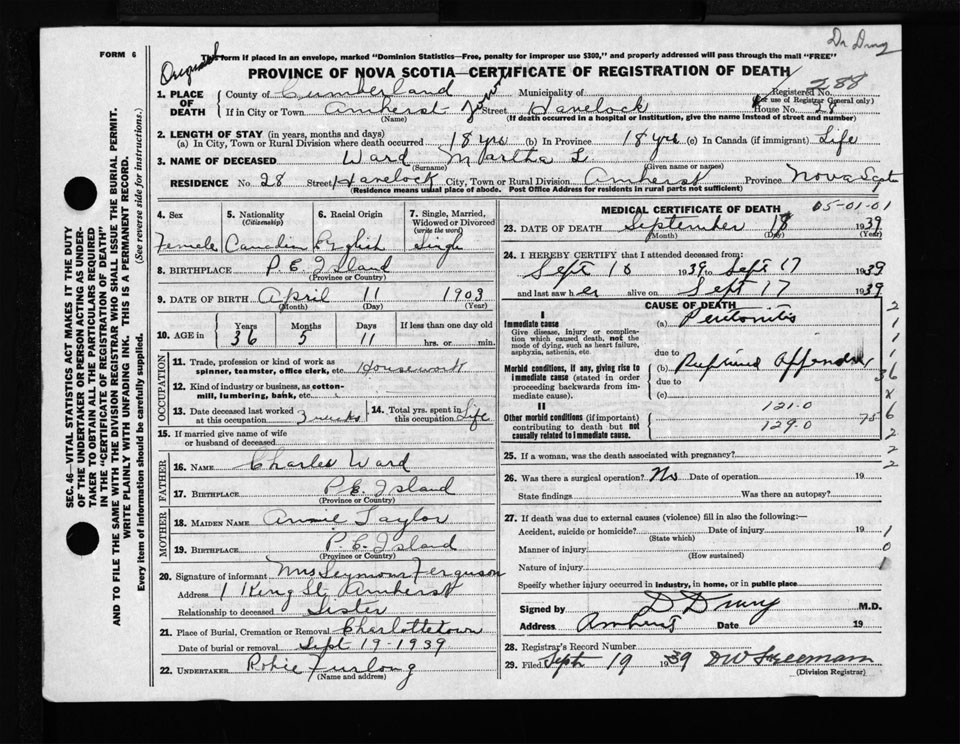 Dr Drury
FORM 6
This form if placed in an envelope, marked "Dominion Statistics—Free, penalty for improper use $300," and properly addressed will pass through the mail "FREE"
Original
PROVINCE OF NOVA SCOTIA—CERTIFICATE OF REGISTRATION OF DEATH
288
1. PLACE OF DEATH
County of Cumberland Municipality of Registered No.
(For use of Registrar General only)
If in City or Town Amherst Street Havelock House No. 28
(Name) (If death occurred in a hospital or institution, give the name instead of street and number)
2. LENGTH OF STAY (in years, months and days)
(a) In City, Town or Rural Division where death occurred 18 yrs (b) In Province 18 yrs (c) In Canada (if immigrant) Life
3. NAME OF DECEASED Ward Martha L.
(Surname) (Given name or names)
RESIDENCE No. 28 Street Havelock City, Town or Rural Division Amherst Province Nova Scotia
(Residence means usual place of abode. Post Office Address for residents in rural parts not sufficient)
4. Sex
Female
5. Nationality
(Citizenship)
Canadin
6. Racial Origin
English
7. Single, Married, Widowed or Divorced
(write the word)
Single
8. BIRTHPLACE P. E. Island
(Province or Country)
9. DATE OF BIRTH April 11 1903
(Month) (Day) (Year)
10. AGE in
Years Months Days If less than one day old
36 5 11 hrs. or min.
OCCUPATION
11. Trade, profession or kind of work as
spinner, teamster, office clerk, etc. Housework
12. Kind of industry or business, as cotton-
mill, lumbering, bank, etc.
13. Date deceased last worked
at this occupation 3 weeks
14. Total yrs. spent in
this occupation Life
15. If married give name of wife
or husband of deceased
FATHER
16. NAME Charles Ward
17. BIRTHPLACE P E Island
(Province or Country)
MOTHER
18. MAIDEN NAME Annie Taylor
19. BIRTHPLACE P. E. Island
(Province or Country)
20. Signature of informant Mrs Seymour Ferguson
Address 1 King St, Amherst
Relationship to deceased Sister
21. Place of Burial, Cremation or Removal Charlottetown
Date of burial or removal Sept 19 - 1939
22. UNDERTAKER Robie Furlong
(Name and address)
MEDICAL CERTIFICATE OF DEATH
05-01-01
23. DATE OF DEATH September 18 1939
(Month) (Day) (Year)
24. I HEREBY CERTIFY that I attended deceased from:
Sept 18 1939 to Sept 17 1939
and last saw her alive on Sept 17 1939
CAUSE OF DEATH
I
Immediate cause (a) Peritonitis
Give disease, injury or complication which caused death, not the mode of dying, such as heart failure, asphyxia, asthenia, etc.
due to
Morbid conditions, if any, giving rise to immediate cause (stated in order proceeding backwards from immediate cause).
(b)
due to
(c)
II
Other morbid conditions (if important) contributing to death but not causally related to immediate cause.
121.0
129.0
25. If a woman, was the death associated with pregnancy?
26. Was there a surgical operation? No Date of operation 19
State findings Was there an autopsy?
27. If death was due to external causes (violence) fill in also the following:—
Accident, suicide or homicide? Date of injury 19
(State which)
Manner of injury
(How sustained)
Nature of injury
Specify whether injury occurred in industry, in home, or in public place
Signed by D Drury M.D.
Address Amherst Date 19
28. Registrar's Record Number
29. Filed Sept 19 1939
(Division Registrar)
SEC. 46—VITAL STATISTICS ACT MAKES IT THE DUTY
OF THE UNDERTAKER OR PERSON ACTING AS UNDER-
TAKER TO OBTAIN ALL THE PARTICULARS REQUIRED
IN THE "CERTIFICATE OF REGISTRATION OF DEATH"
AND TO FILE THE SAME WITH THE DIVISION REGISTRAR WHO SHALL ISSUE THE BURIAL PERMIT.
WRITE PLAINLY WITH UNFADING INK. THIS IS A PERMANENT RECORD.
Every item of information should be carefully supplied. (See reverse side for instructions.)